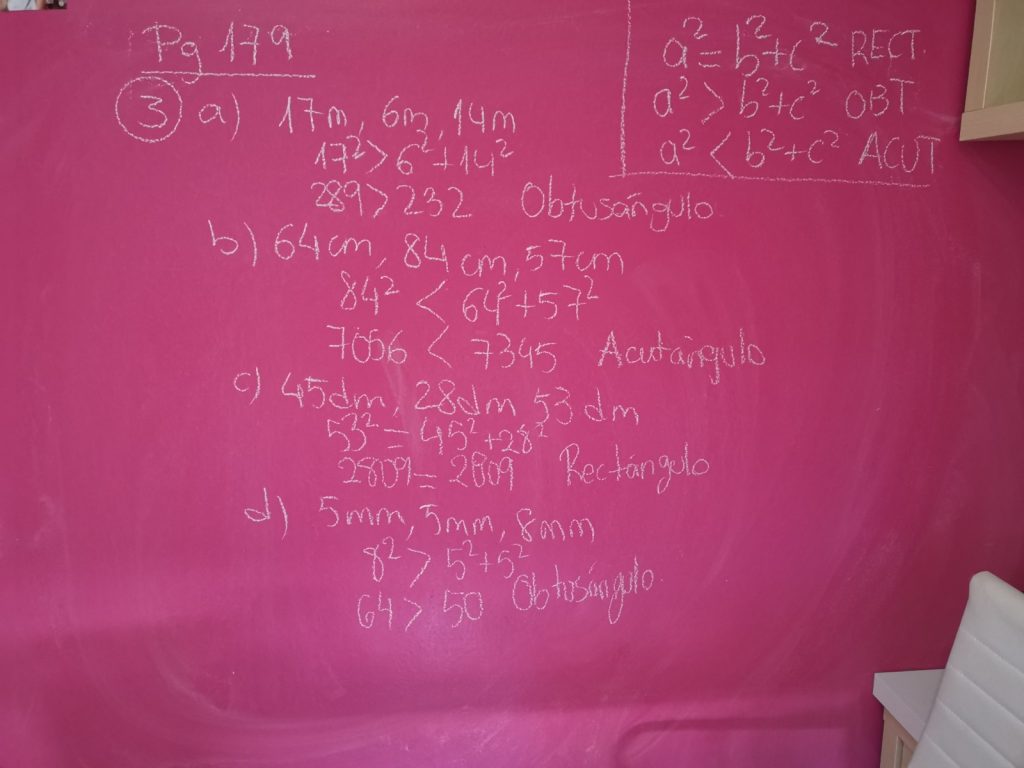 Pg 179
a² = b²+c² RECT.
a² > b²+c² OBT
a² < b²+c² ACUT
3 a) 17m, 6m, 14m
17² > 6²+14²
289 > 232 Obtusángulo
b) 64cm, 84cm, 57cm
84² < 64²+57²
7056 < 7345 Acutángulo
c) 45dm, 28dm 53 dm
53² = 45²+28²
2809 = 2809 Rectángulo
d) 5mm, 5mm, 8mm
8² > 5²+5²
64 > 50 Obtusángulo.